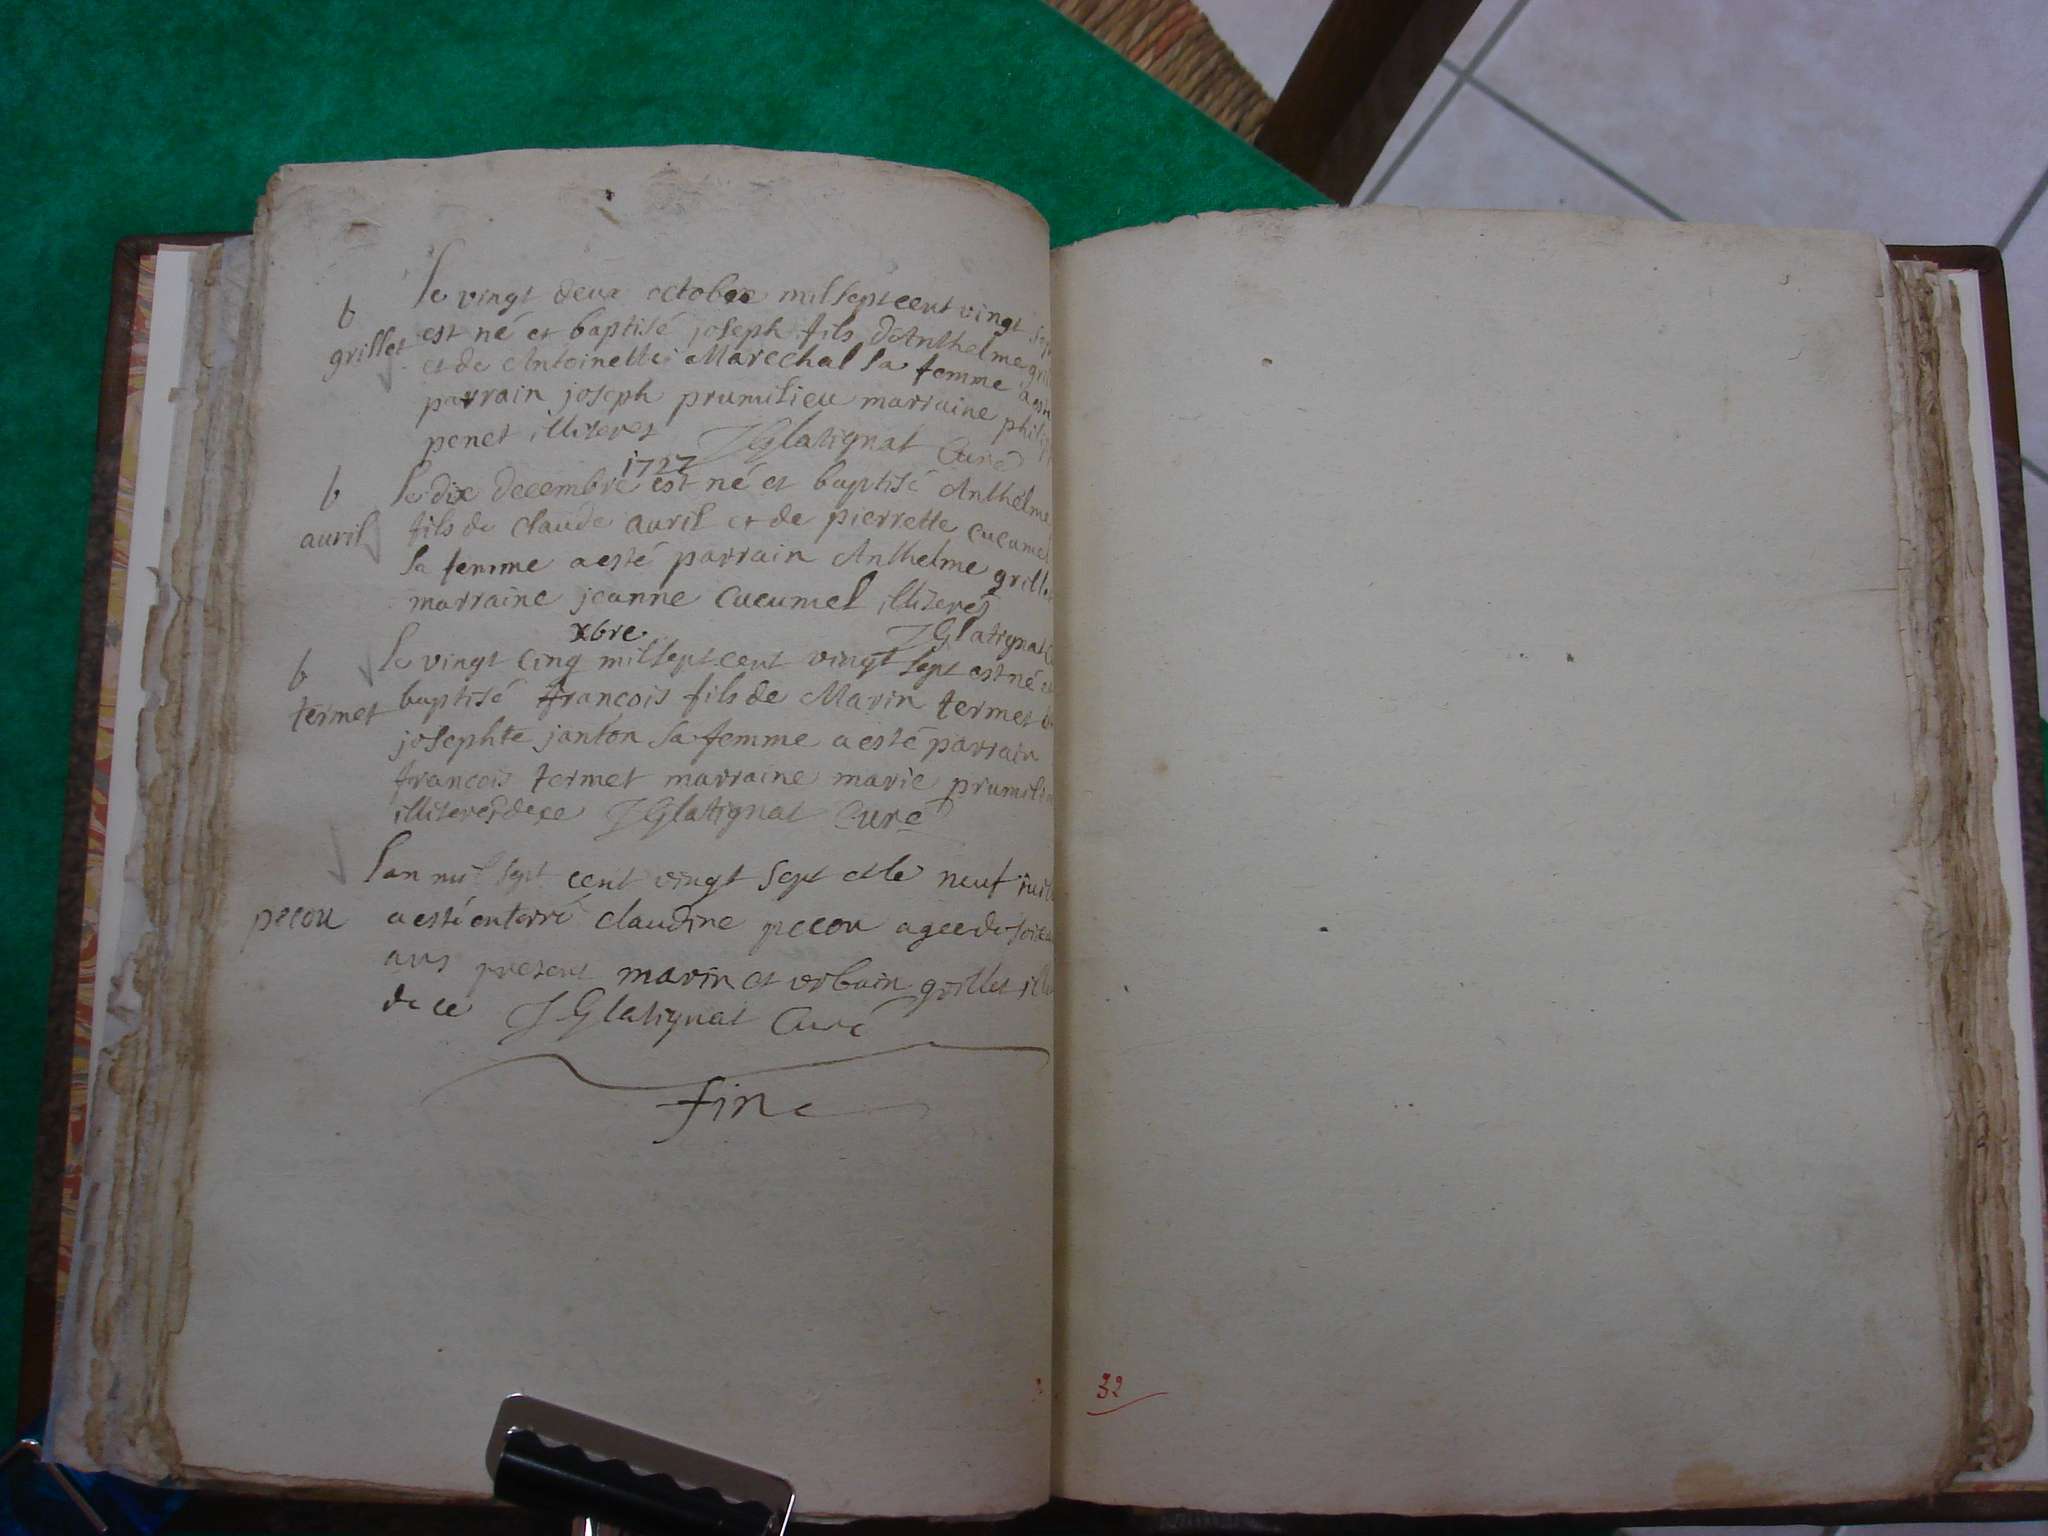 b
grillet
le vingt deux octobre mil sept cent vingt sept
est né et baptisé joseph fils d'Anthelme grill
et de Antoinette Marechal sa femme a esté
parrain joseph prumilieu marraine philip
penet illiterez JGlatignat Curé
b
auril
1727
le dix decembre est né et baptisé Anthelme
fils de claude auril et de pierrette cucumel
sa femme a esté parrain Anthelme grillet
marraine jeanne Cucumel illiterez
JGlatignat C
b
termet
xbre
le vingt cinq mil sept cent vingt sept est né et
baptisé francois fils de Marin termet et
josephte janton sa femme a esté parrain
francois termet marraine marie prumilie
illiterez de ce JGlatignat Curé
pecou
lan mil sept cent vingt sept et le neuf juil
a esté enterré claudine pecou agee de soixa
ans present marin et urbain grillet ille
de ce JGlatignat Curé
fin
32